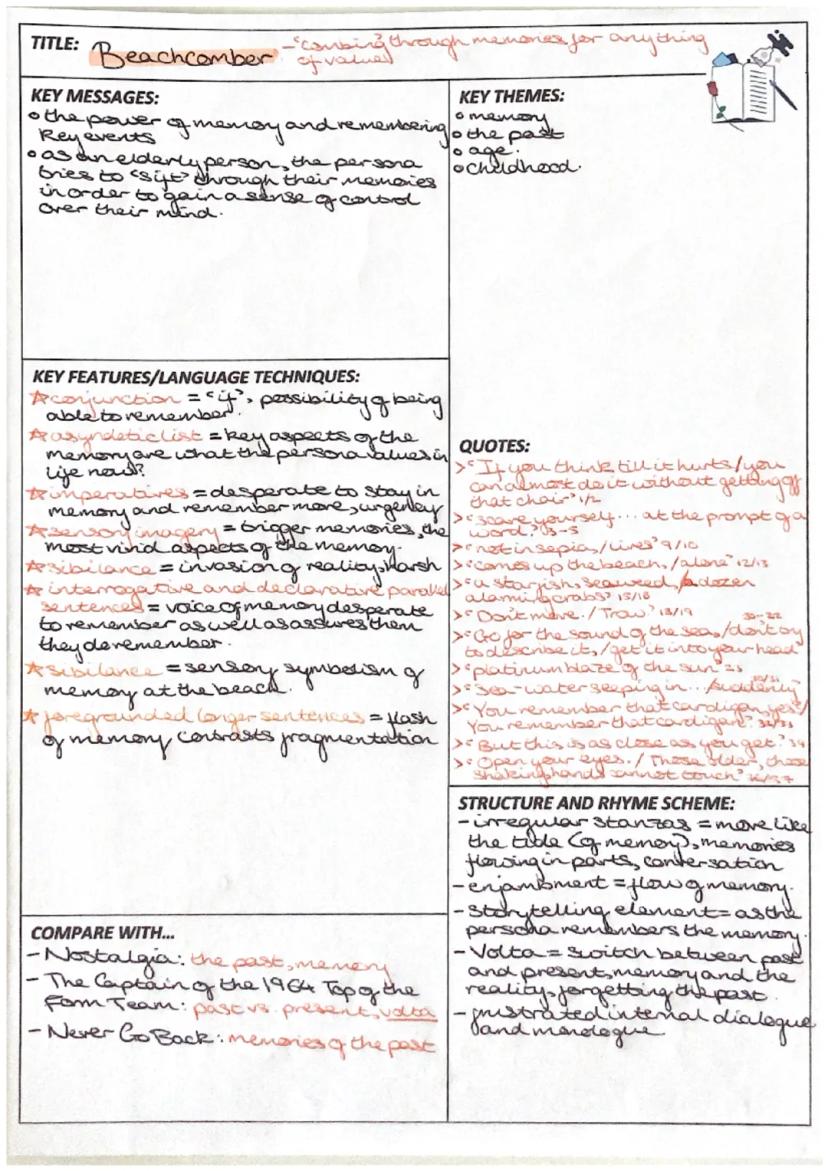 TITLE: Beachcomber - 'combing' through memories for anything
of value
KEY MESSAGES:
• the power of memory and remembering
key events
• as an elderly person, the persona
tries to 'sift' through their memories
in order to gain a sense of control
over their mind.
KEY THEMES:
• memory
• the past
• age.
• childhood.
KEY FEATURES/LANGUAGE TECHNIQUES:
☆ conjunction = 'if', possibility of being
able to remember.
☆ asyndetic list = key aspects of the
memory are what the persona values in
life now?
☆ imperatives = desperate to stay in
memory and remember more, urgency
☆ sensory imagery = trigger memories, the
most vivid aspects of the memory.
☆ sibilance = invasion of reality, harsh
☆ interrogative and declarative parallel
sentences = voice of memory desperate
to remember as well as assures them
they do remember.
☆ sibilance = sensory symbolism of
memory at the beach.
☆ foregrounded longer sentences = flash
of memory contrasts fragmentation
QUOTES:
>'If you think till it hurts/you
can almost do it without getting off
that chair' 1/2
>'scare yourself... at the prompt of a
word.' 3-5
>'not in sepia,/lives' 9/10
>'comes up the beach,/alone' 12/13
>'a starfish, seaweed, a dozen
alarming crabs' 15/16
>'Don't move./Trow.' 18/19
>'Go for the sound of the sea,/don't try
to describe it,/get it into your head' 20-22
>'platinum blaze of the sun' 25
>'Sea-water seeping in.../suddenly' 30/31
>'You remember that cardigan, yes?/
You remember that cardigan.' 32/33
>'But this is as close as you get.' 34
>'Open your eyes./Those older, those
shaking hands cannot touch' 36/37
STRUCTURE AND RHYME SCHEME:
- irregular stanzas = move like
the tide (of memory), memories
flowing in parts, conversation
- enjambment = flow of memory.
- storytelling element = as the
persona remembers the memory.
- Volta = switch between past
and present, memory and the
reality, forgetting the past.
- frustrated internal dialogue
and monologue
COMPARE WITH...
- Nostalgia: the past, memory
- The Captain of the 1964 Top of the
Form Team: past vs. present, volta
- Never Go Back: memories of the past